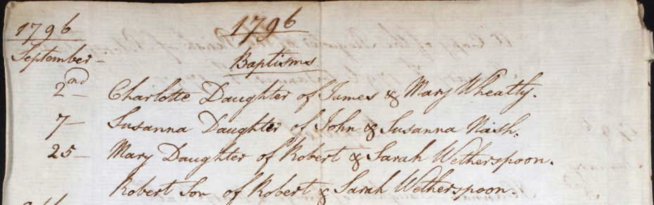 1796 1796
September– Baptisms
2nd Charlotte Daughter of James & Mary Wheatly.
7– Susanna Daughter of John & Susanna Nash.
25– Mary Daughter of Robert & Sarah Wetherspoon.
Robert Son of Robert & Sarah Wetherspoon.